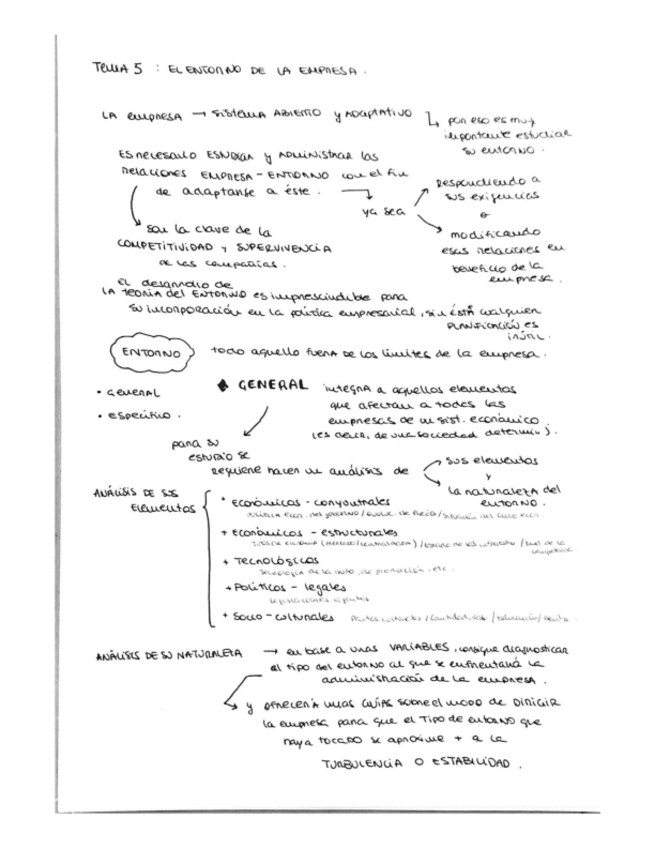 TEMA 5 : EL ENTORNO DE LA EMPRESA.
LA empresa → SISTEMA ABIERTO y ADAPTATIVO ↳ por eso es muy
importante estudiar
su entorno.
ES necesario ESTUDIAR y ADMINISTRAR las
relaciones EMPRESA-ENTORNO con el fin
de adaptarse a éste. → ya sea
Respondiendo a
sus exigencias
o
modificando
esas relaciones en
beneficio de la
empresa.
son la clave de la
COMPETITIVIDAD y SUPERVIVENCIA
de las compañías.
El desarrollo de
LA TEORÍA del ENTORNO es imprescindible para
su incorporación en la política empresarial, sin ésta cualquier
PLANIFICACIÓN es
inútil.
ENTORNO todo aquello fuera de los límites de la empresa.
• GENERAL
• específico.
◆ GENERAL integra a aquellos elementos
que afectan a todas las
empresas de un sist. económico
(es decir, de una sociedad determin).
para su
estudio se
requiere hacer un análisis de
sus elementos
y
la naturaleza del
entorno.
ANÁLISIS DE SUS
Elementos
* Económicos - coyunturales
+ Económicos - estructurales
+ Tecnológicos
+ Políticos - legales
+ Socio-culturales
ANÁLISIS DE SU NATURALEZA → en base a unas VARIABLES, consigue diagnosticar
el tipo del entorno al que se enfrentará la
administración de la empresa.
↳ y ofrecerá unas guías sobre el modo de DIRIGIR
la empresa para que el tipo de entorno que
haya tocado se aproxime + a la
TURBULENCIA O ESTABILIDAD.